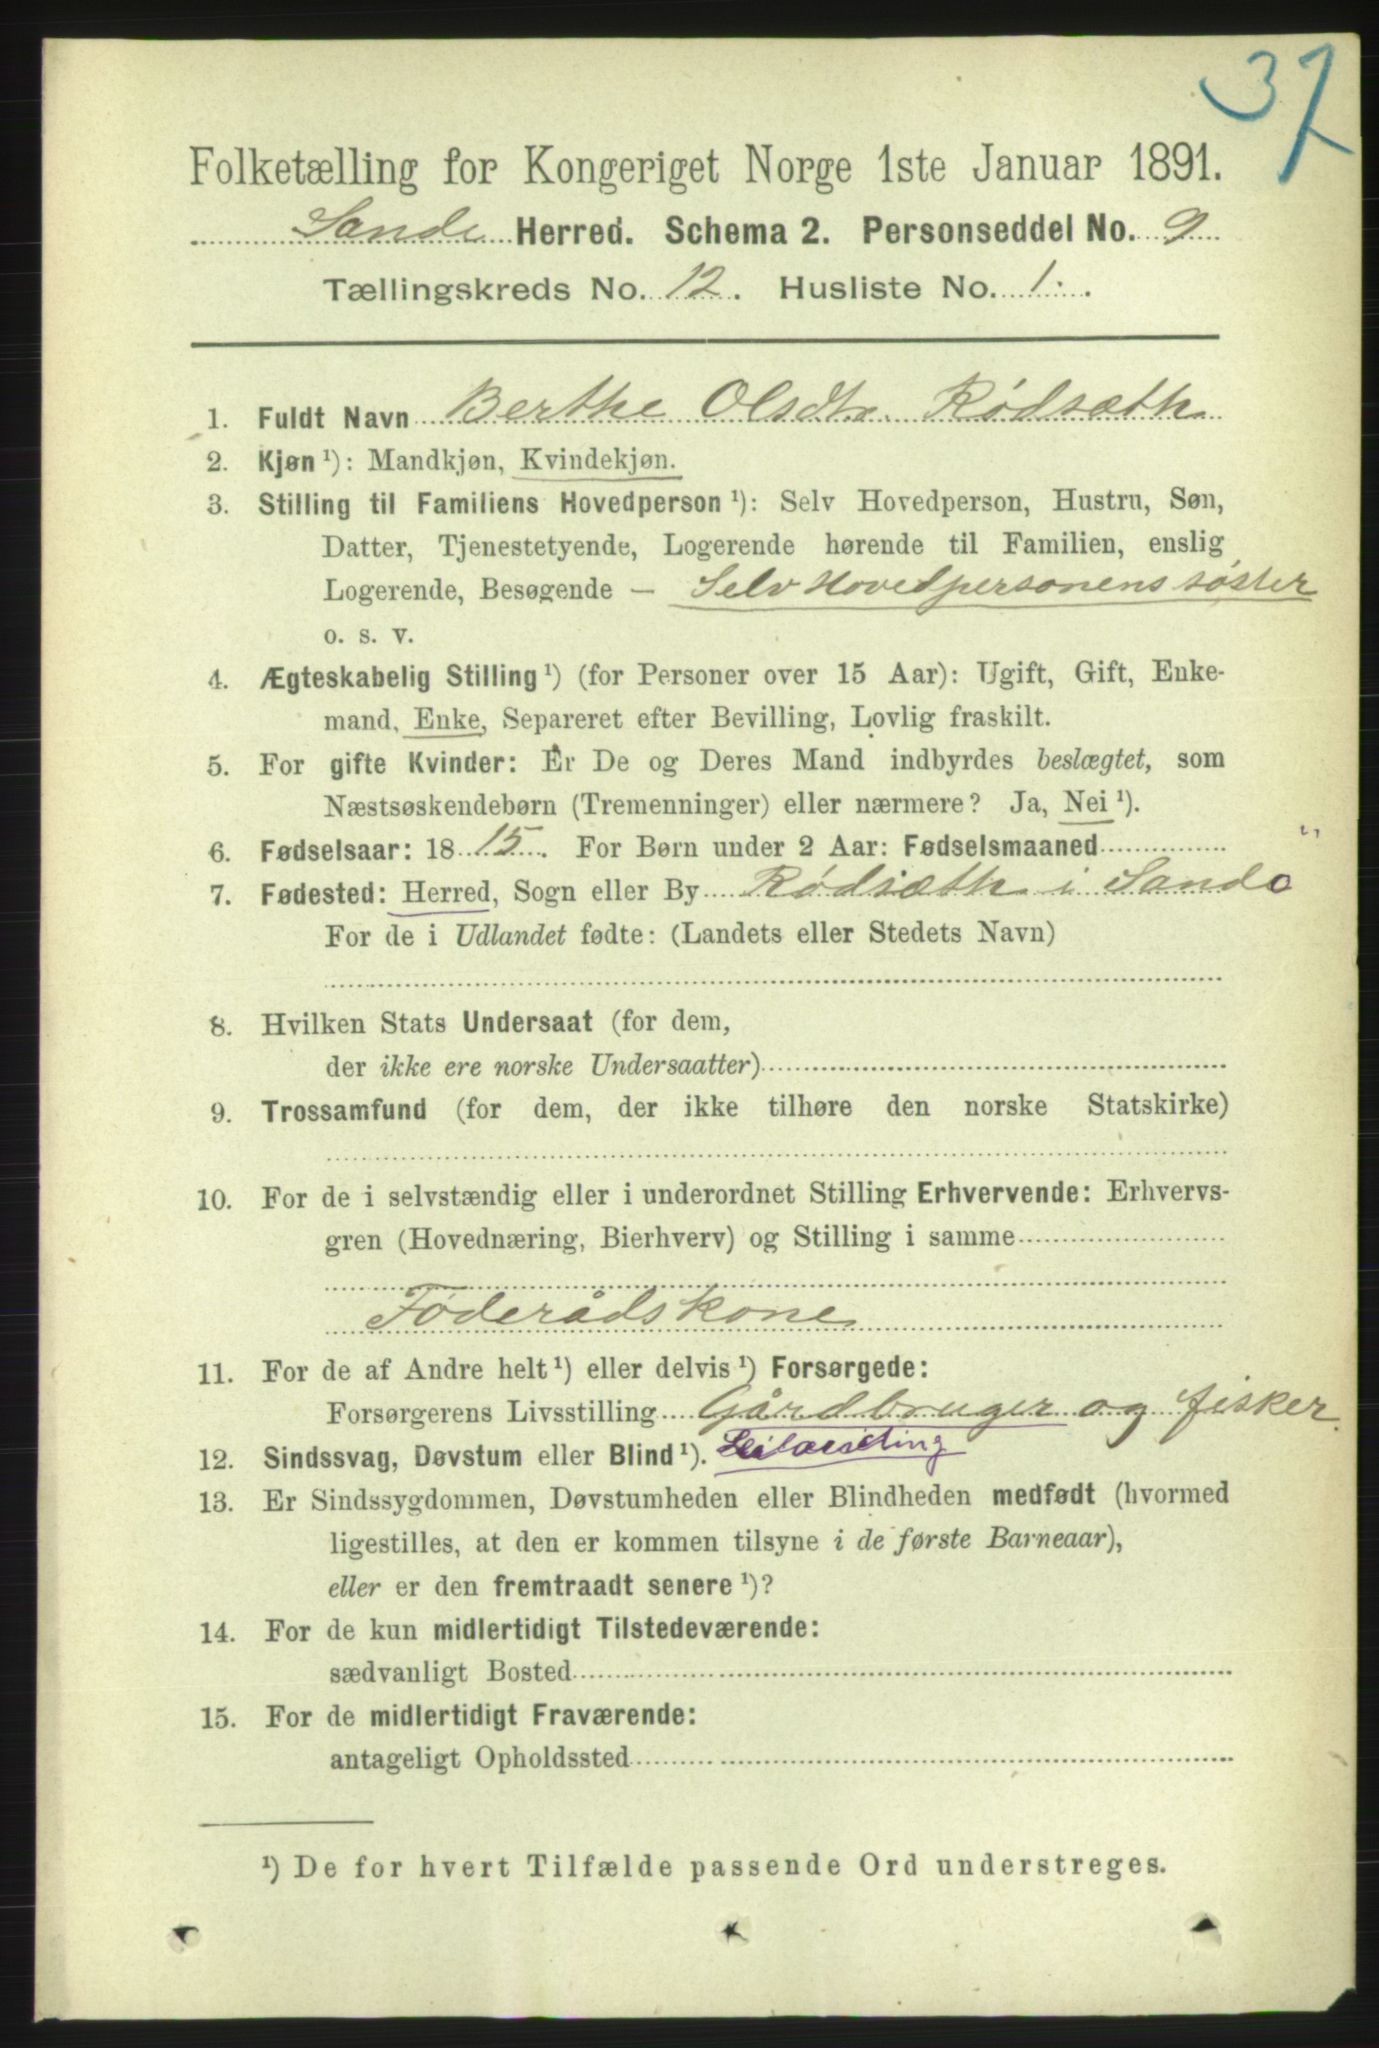 37
Folketælling for Kongeriget Norge 1ste Januar 1891.
Sande Herred. Schema 2. Personseddel No. 9
Tællingskreds No. 12. Husliste No. 1.
1. Fuldt Navn Berthe Olsdtr Rødsæth
2. Kjøn ¹): Mandkjøn, Kvindekjøn.
3. Stilling til Familiens Hovedperson ¹): Selv Hovedperson, Hustru, Søn,
Datter, Tjenestetyende, Logerende hørende til Familien, enslig
Logerende, Besøgende – Selv Hovedpersonens søster
o. s. v.
4. Ægteskabelig Stilling ¹) (for Personer over 15 Aar): Ugift, Gift, Enke-
mand, Enke, Separeret efter Bevilling, Lovlig fraskilt.
5. For gifte Kvinder: Er De og Deres Mand indbyrdes beslægtet, som
Næstsøskendebørn (Tremenninger) eller nærmere? Ja, Nei ¹).
6. Fødselsaar: 1815. For Børn under 2 Aar: Fødselsmaaned "
7. Fødested: Herred, Sogn eller By Rødsæth i Sande
For de i Udlandet fødte: (Landets eller Stedets Navn)
8. Hvilken Stats Undersaat (for dem,
der ikke ere norske Undersaatter)
9. Trossamfund (for dem, der ikke tilhøre den norske Statskirke)
10. For de i selvstændig eller i underordnet Stilling Erhvervende: Erhvervs-
gren (Hovednæring, Bierhverv) og Stilling i samme
Føderådskone
11. For de af Andre helt ¹) eller delvis ¹) Forsørgede:
Forsørgerens Livsstilling Gårdbruger og fisker.
12. Sindssvag, Døvstum eller Blind ¹).
13. Er Sindssygdommen, Døvstumheden eller Blindheden medfødt (hvormed
ligestilles, at den er kommen tilsyne i de første Barneaar),
eller er den fremtraadt senere ¹)?
14. For de kun midlertidigt Tilstedeværende:
sædvanligt Bosted
15. For de midlertidigt Fraværende:
antageligt Opholdssted
¹) De for hvert Tilfælde passende Ord understreges.